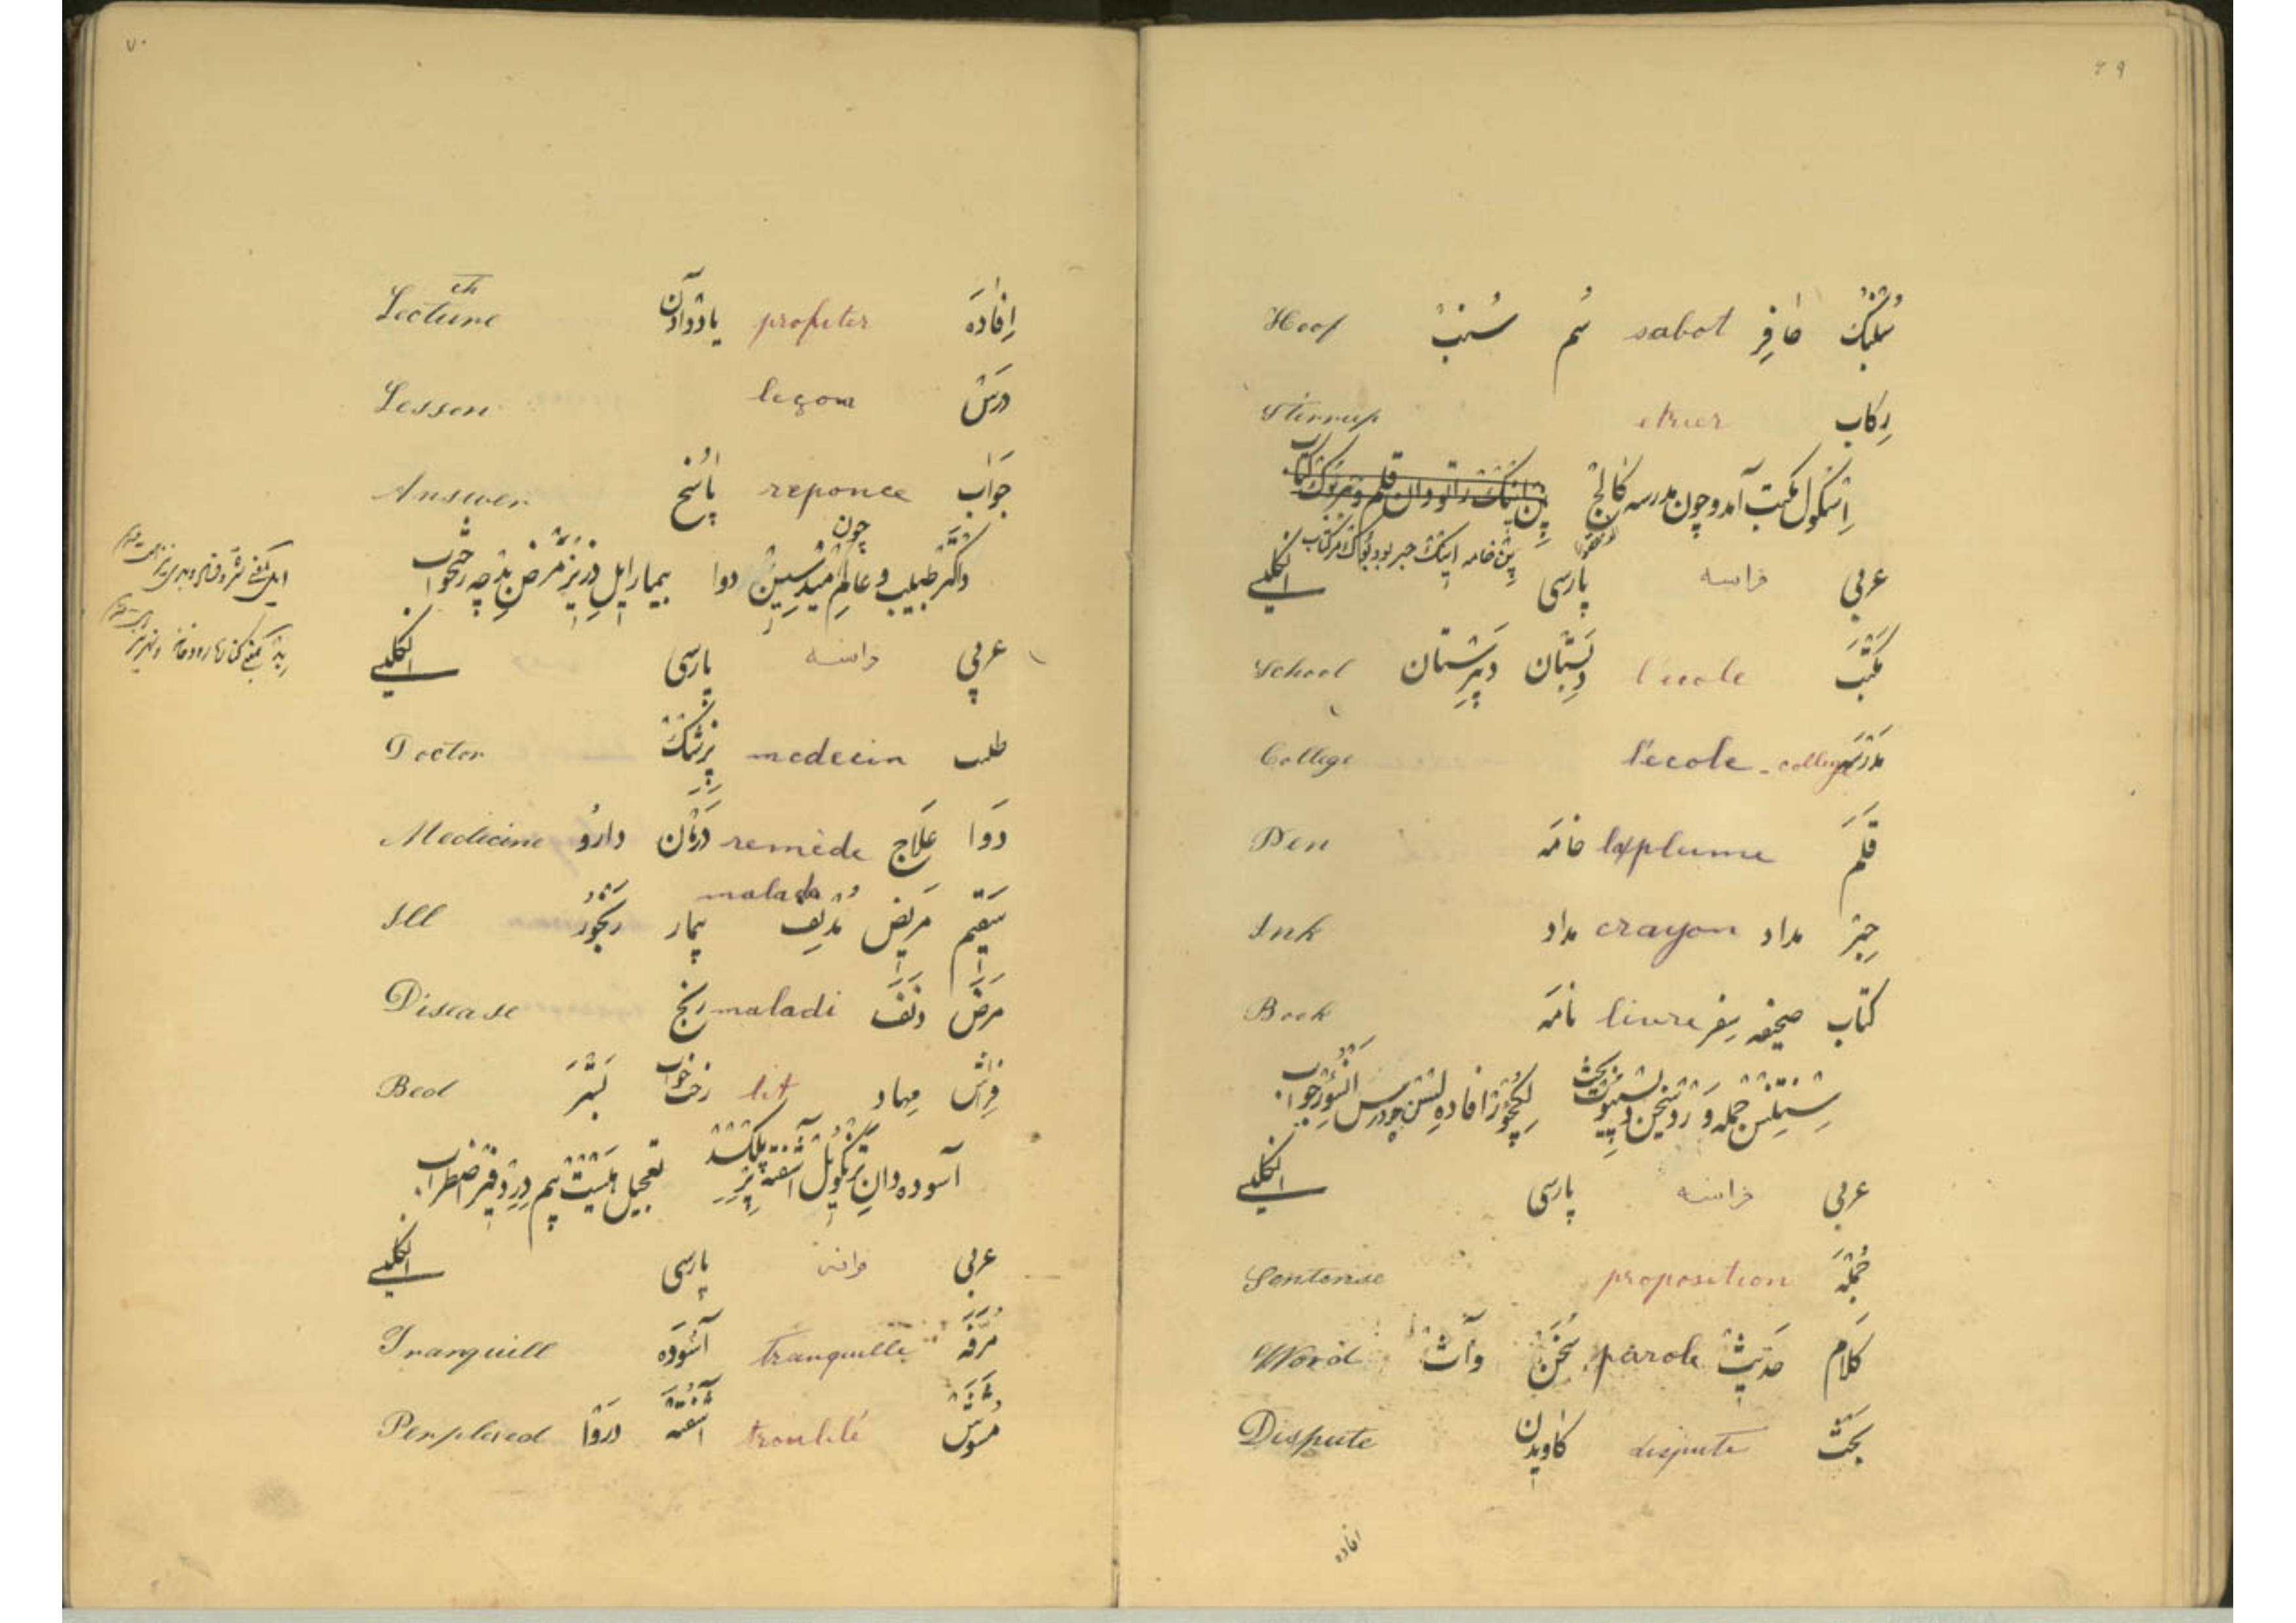 ٦٩
سُنْبُک حافِر sabot سُم سُنب Hoof
رِکاب etrier Stirrup
اِسْکول مکتب آمد و چون مدرسه کالِج
پِن خامه اینک حبر بود بوک مر کتاب
عربی فرانسه پارسی انگلیسی
مَکْتَب l'école دَبِسْتان دبیرستان School
مَدْرَسَه l'ecole - college College
قَلَم la plume خامَه Pen
حِبْر مداد crayon مداد Ink
کتاب صحیفه سِفر livre نامَه Book
سِنْتِنْس جمله وَرْد سخن دِسپیوت بحث لِکْچُوْر افاده لِسْن چو درس اَنْسُوِر جواب
عربی فرانسه پارسی انگلیسی
جُمْلَه proposition Sentense
کَلام حَدیث parole سُخَن وات Word
بَحْث dispute کاویدن Dispute
افاده
٧٠
اِفادَه profiter یاد دادن Lecture
ch
دَرْس leçon Lesson
جَواب reponce پاسُخ Answer
داکْتَر طبیب و عالِم چون مِیدِسِین دوا بیمار ایل دِزِیز مرض بِد چه رختخواب
عربی فرانسه پارسی انگلیسی
طبیب medecin پِزِشْک Doctor
دَوا عَلاج remède دَرْمان دارُو Medicine
سَقیم مَریض مُدْنِف malade بیمار رَنْجُوْر Ill
مَرَض دَنَف maladi رنج Disease
فِراش مِهاد lit رخت خواب بَسْتَر Bed
آسوده دان تِرَنْکُوِیل آشفته پِرپِلکْسْد تعجیل هَیسْت بیم دِرِد فِیَر اضطراب
عربی فرانسه پارسی انگلیسی
مُرَفَّه tranquille آسُوْدَه Tranquill
مُشَوَّش troublé آشُفْتَه دَرْوا Perplexed